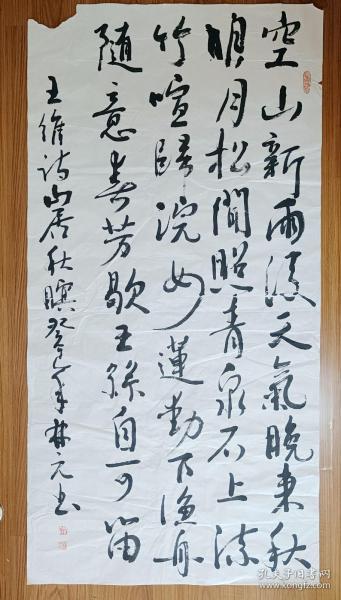 空山新雨後天氣晚來秋
明月松間照青泉石上流
竹喧歸浣女蓮動下漁舟
隨意春芳歇王孫自可留
王維詩山居秋暝癸年林元書
孔夫子旧书网